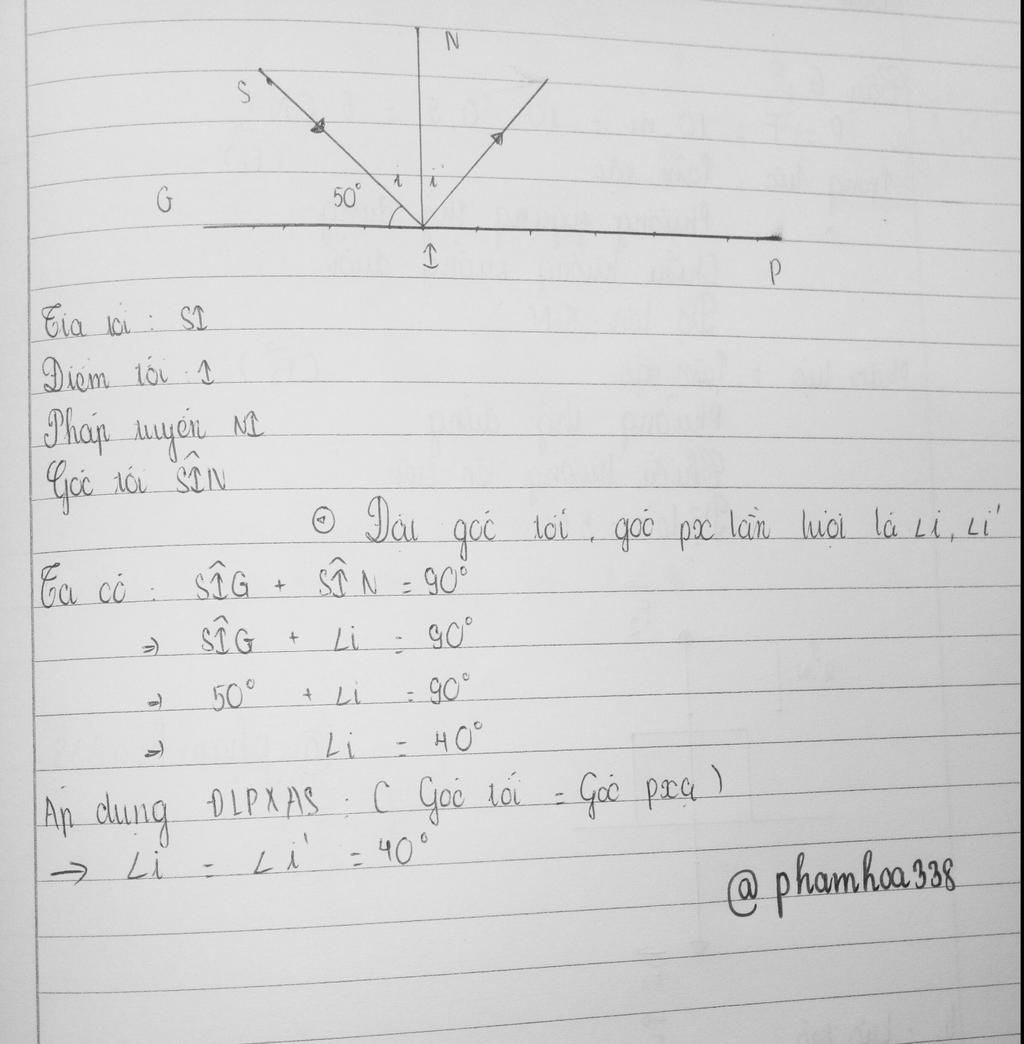 N
S
i i
50°
G
I
P
Tia tới : SI
Điểm tới : I
Pháp tuyến NI
Góc tới SÎN
⊙ Đặt góc tới, góc px lần lượt là ∠i, ∠i'
Ta có : SÎG + SÎN = 90°
⇒ SÎG + ∠i = 90°
⇒ 50° + ∠i = 90°
⇒ ∠i = 40°
Áp dụng ĐLPXAS : ( Góc tới = Góc pxạ )
→ ∠i = ∠i' = 40°
@ phamhoa338